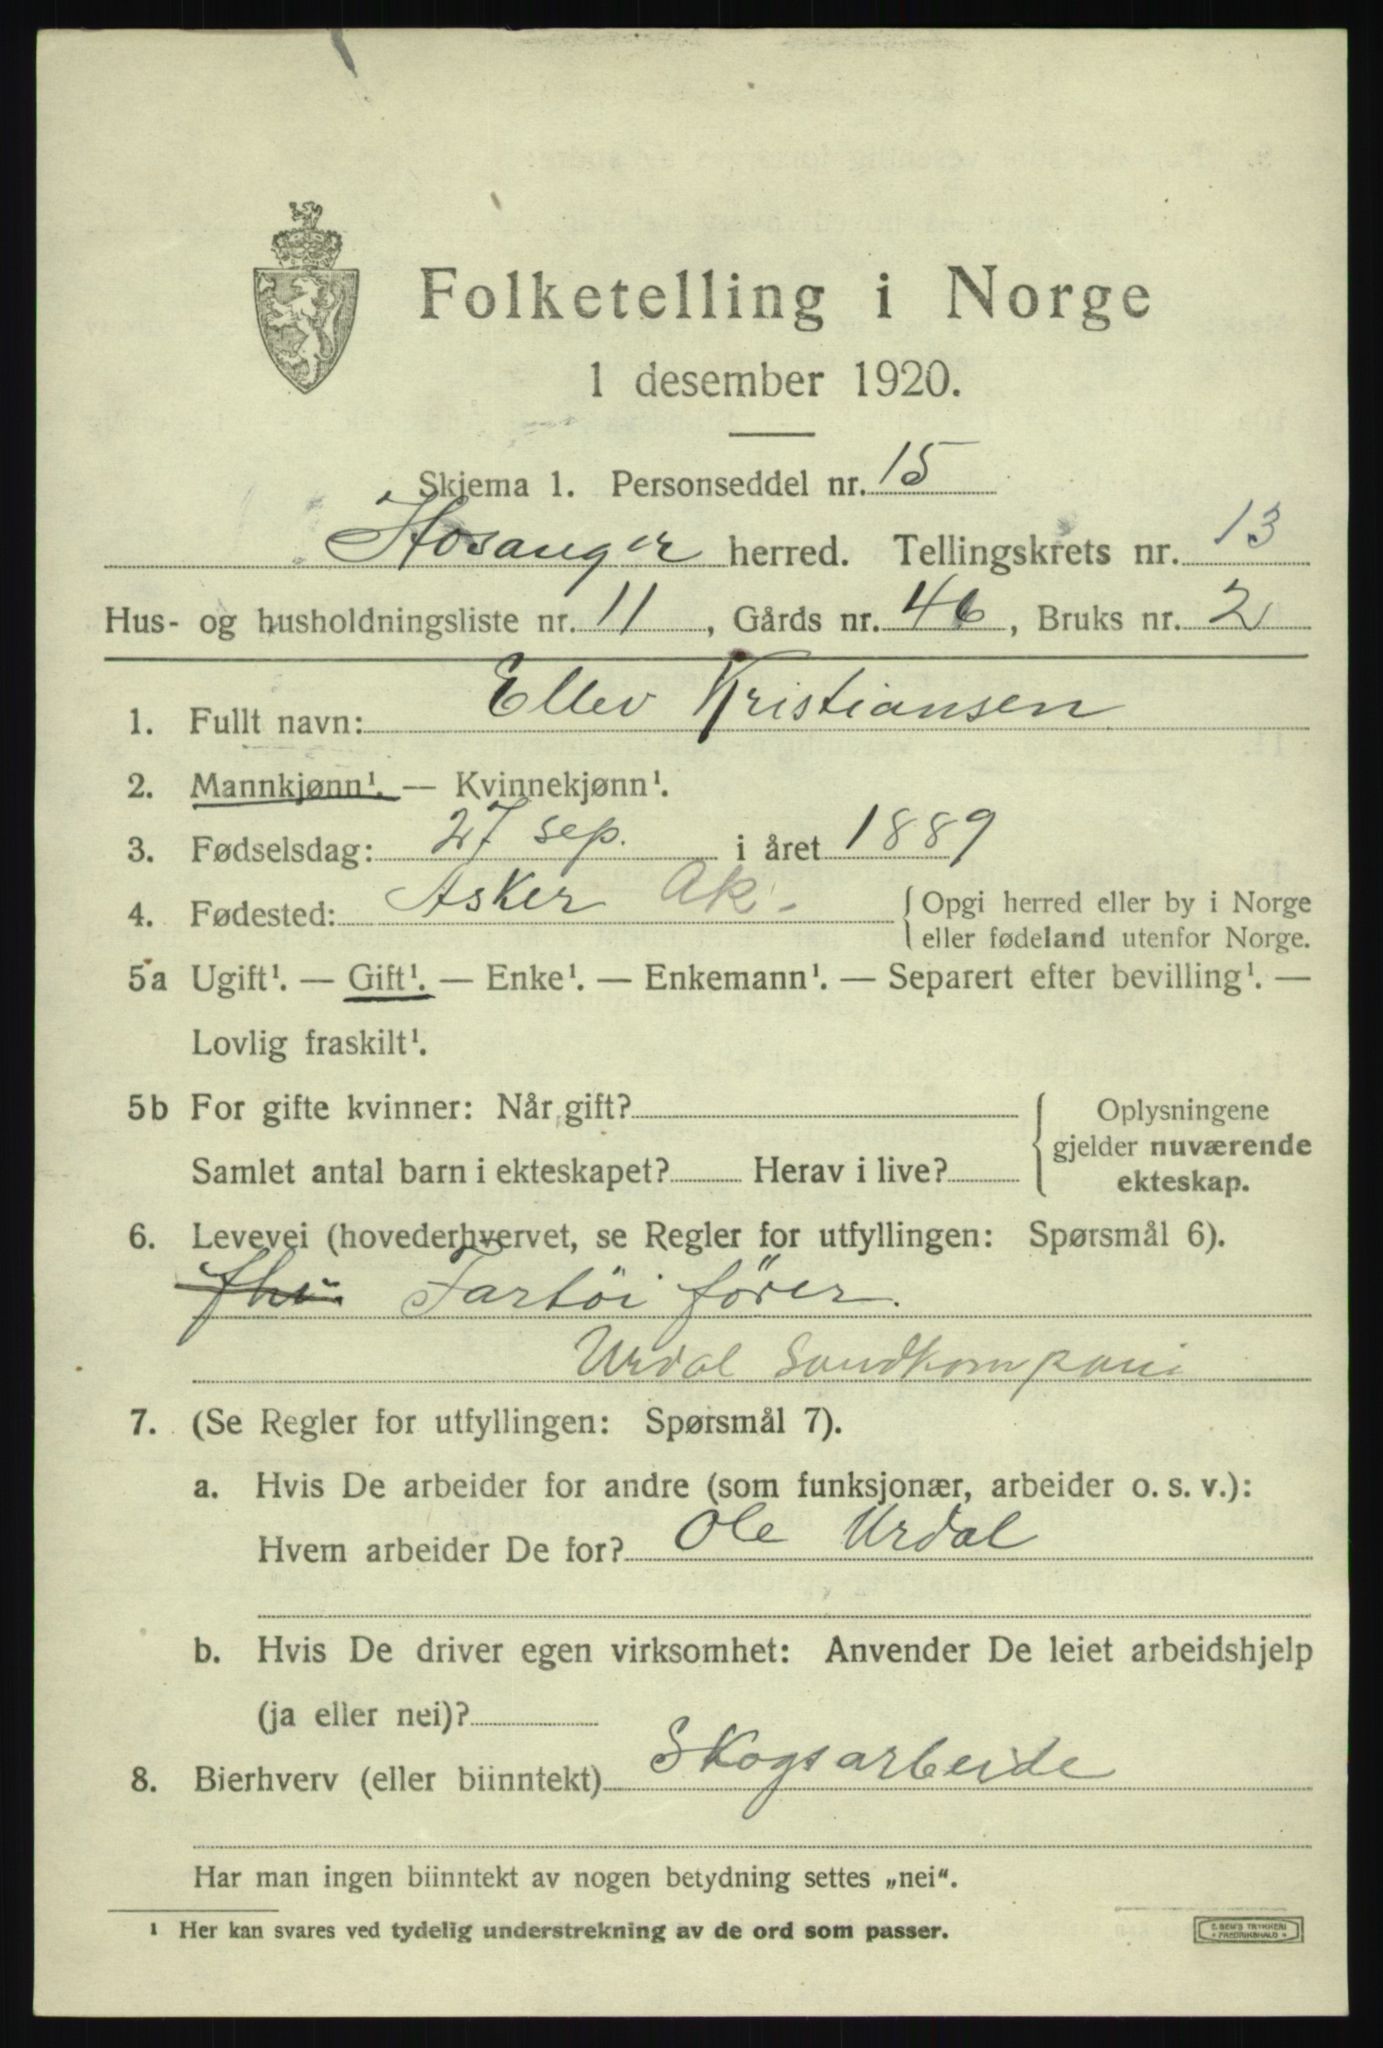 Folketelling i Norge
1 desember 1920.
Skjema 1. Personseddel nr. 15
Hosanger herred. Tellingskrets nr. 13
Hus- og husholdningsliste nr. 11, Gårds nr. 46, Bruks nr. 2
1. Fullt navn: Ellev Kristiansen
2. Mannkjønn¹. — Kvinnekjønn¹.
3. Fødselsdag: 27 sep. i året 1889
4. Fødested: Asker Ak. {Opgi herred eller by i Norge
eller fødeland utenfor Norge.
5a Ugift¹. — Gift¹. — Enke¹. — Enkemann¹. — Separert efter bevilling¹. —
Lovlig fraskilt¹.
5b For gifte kvinner: Når gift? {Oplysningene
gjelder nuværende
Samlet antal barn i ekteskapet? Herav i live? ekteskap.
6. Levevei (hovederhvervet, se Regler for utfyllingen: Spørsmål 6).
Fartöi förer.
Urdal Sandkompani
7. (Se Regler for utfyllingen: Spørsmål 7).
a. Hvis De arbeider for andre (som funksjonær, arbeider o. s. v.):
Hvem arbeider De for? Ole Urdal
b. Hvis De driver egen virksomhet: Anvender De leiet arbeidshjelp
(ja eller nei)?
8. Bierhverv (eller biinntekt) Skogsarbeide
Har man ingen biinntekt av nogen betydning settes „nei“.
¹ Her kan svares ved tydelig understrekning av de ord som passer.
E. SEM'S TRYKKERI
FREDRIKSHALD